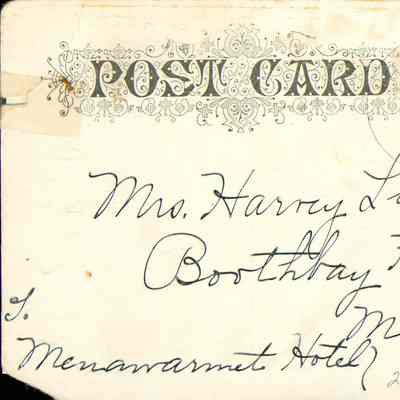 POST CARD
Mrs. Harvey
Boothbay
Menawarmet Hotel